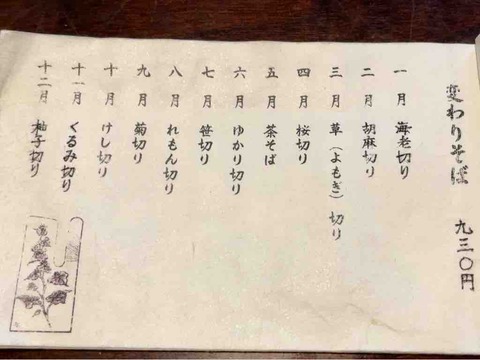 変わりそば 九三〇円
一月 海老切り
二月 胡麻切り
三月 草(よもぎ)切り
四月 桜切り
五月 茶そば
六月 ゆかり切り
七月 笹切り
八月 れもん切り
九月 菊切り
十月 けし切り
十一月 くるみ切り
十二月 柚子切り